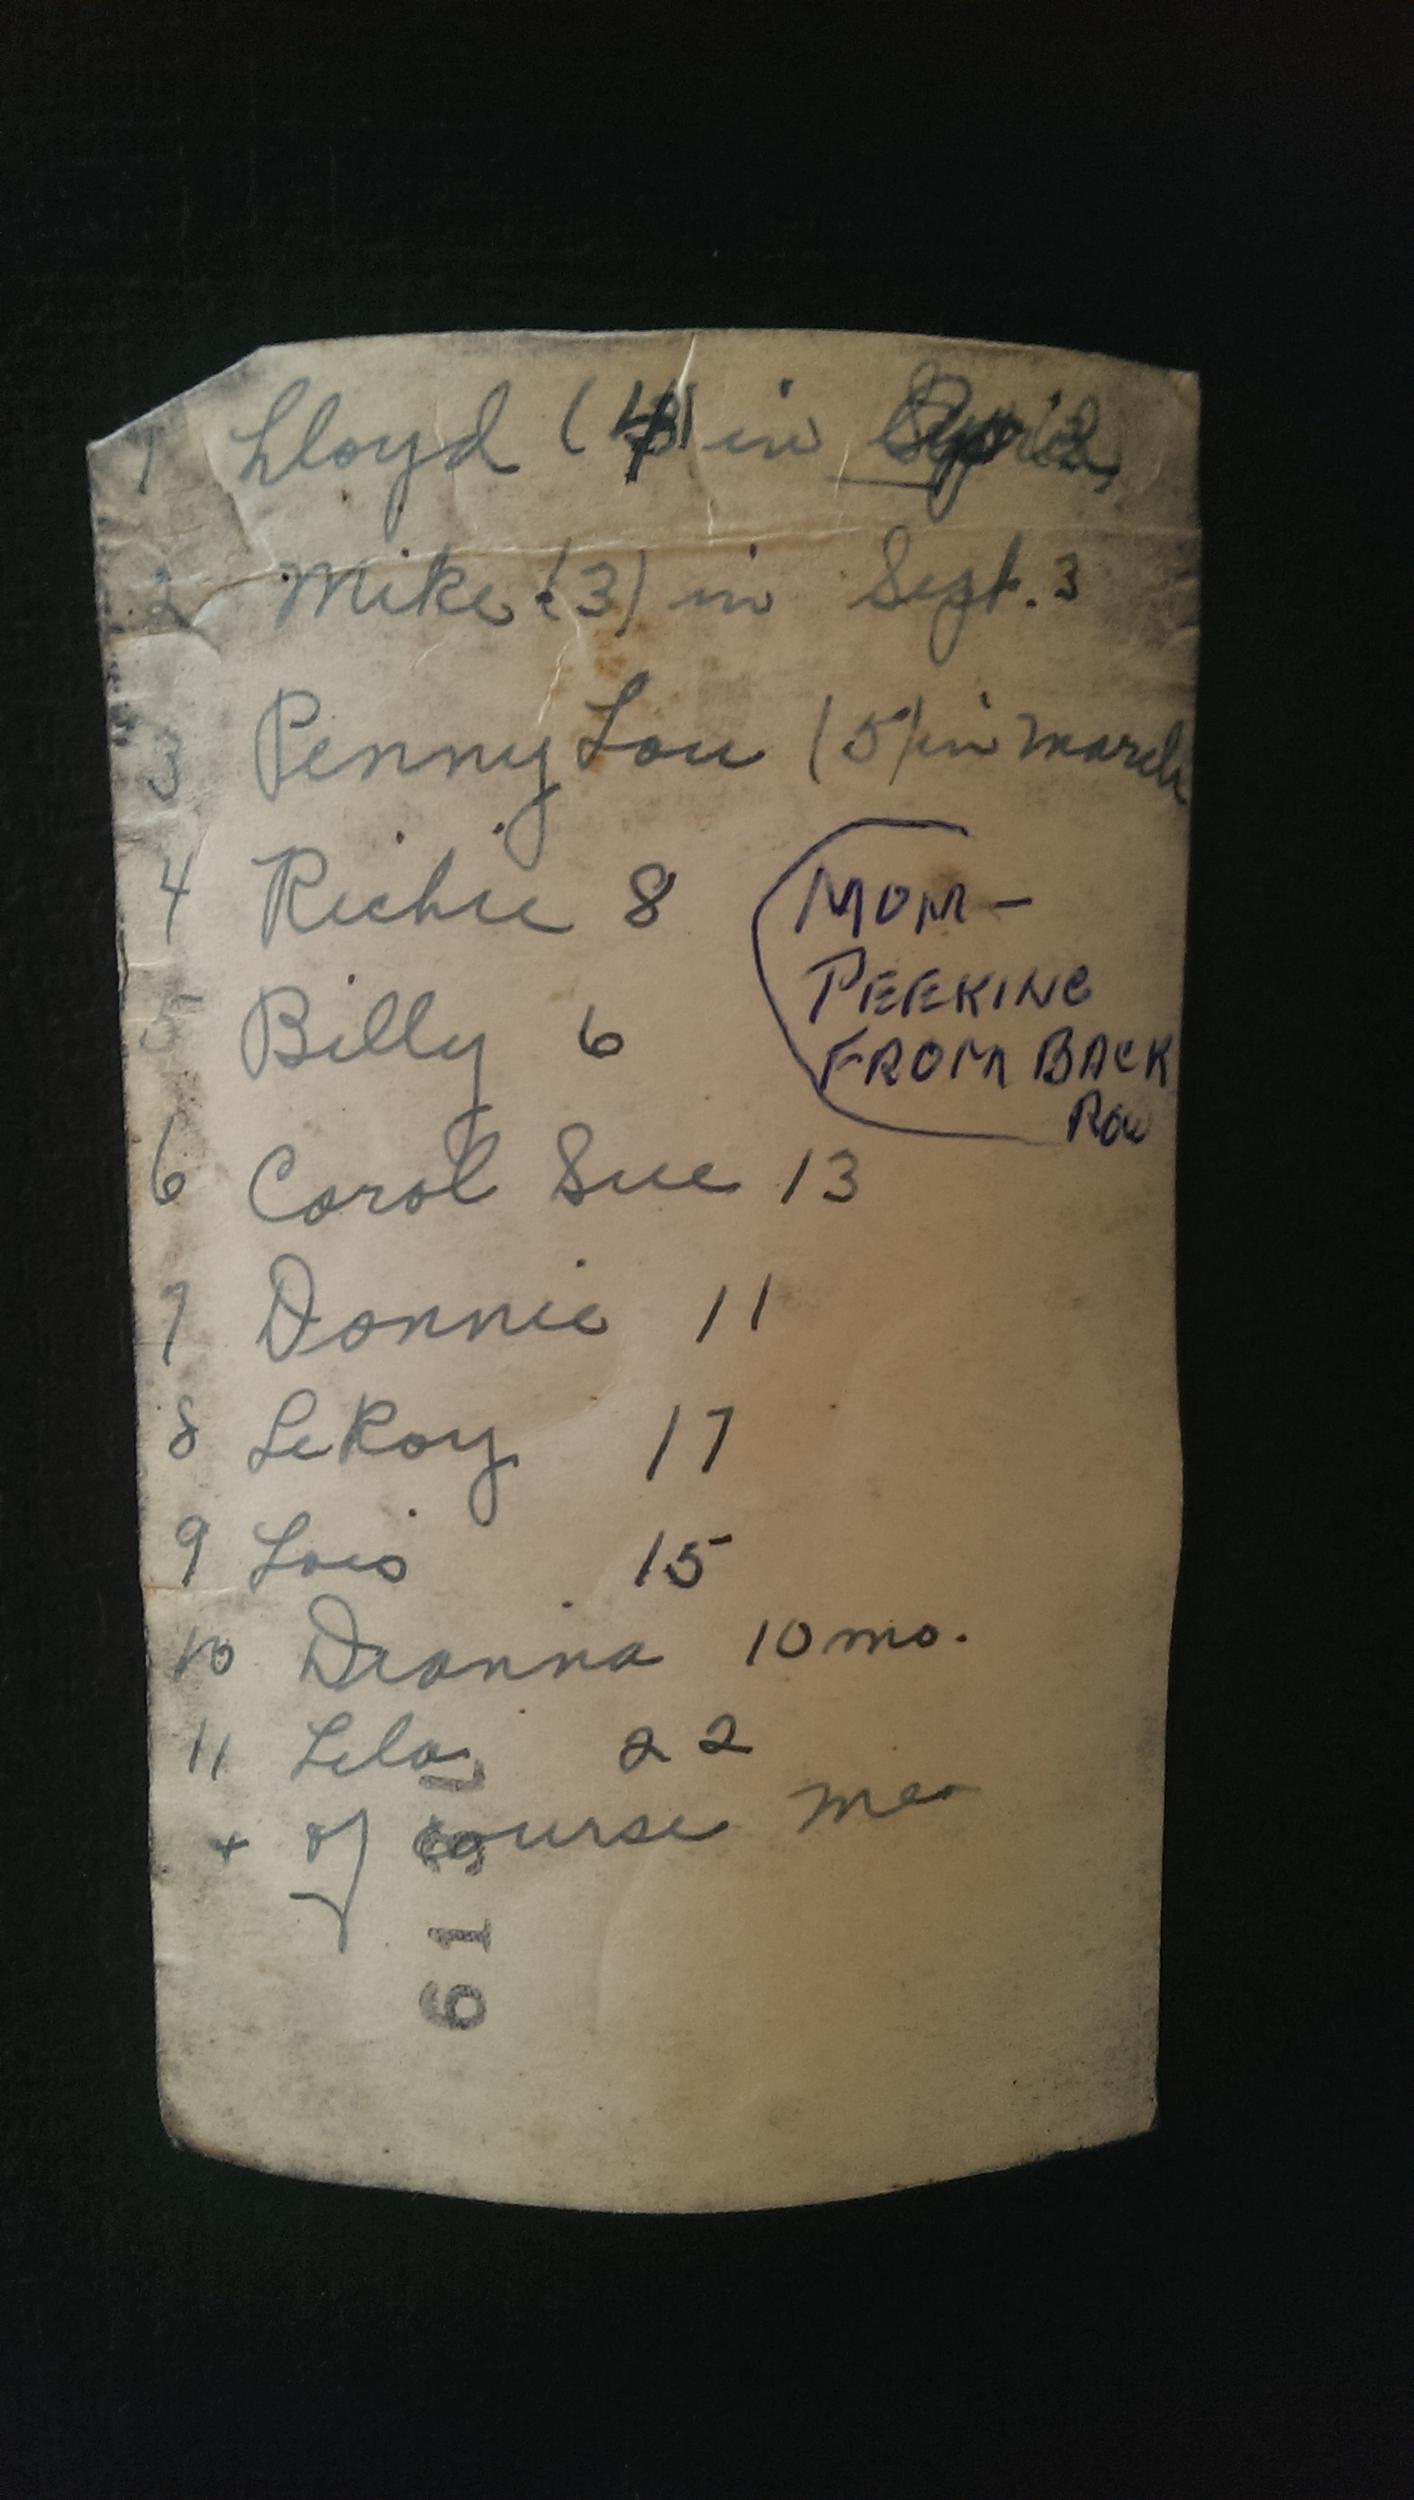 1 Lloyd (4) in April
2 Mike (3) in Sept. 3
3 Penny Lou (5) in march
4 Richie 8
MOM-
PEEKING
FROM BACK
ROW
5 Billy 6
6 Carol Sue 13
7 Donnie 11
8 LeRoy 17
9 Lois 15
10 Deanna 10 mo.
11 Lela 22
+ of course me
61